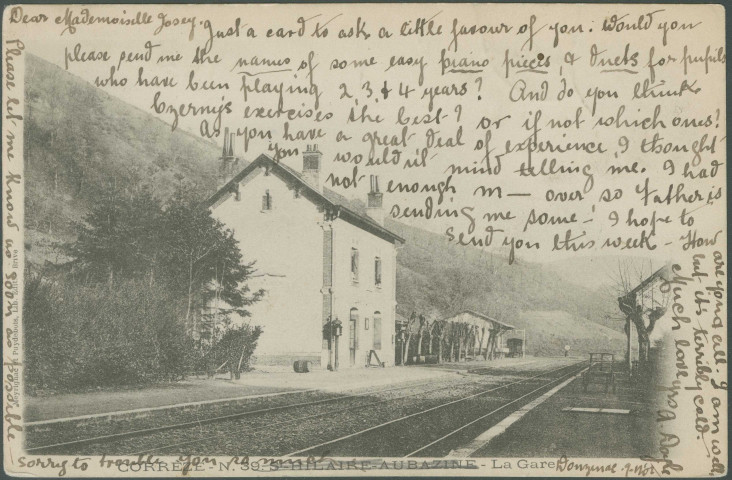 Dear Mademoiselle Josey.
Just a card to ask a little favour of you. Would you
please send me the names of some easy piano pieces & duets for pupils
who have been playing 2, 3, & 4 years? And do you think
Czerny's exercises the best? or if not which ones?
As you have a great deal of experience, I thought
you wouldn't mind telling me. I had
not enough m— over so Father is
sending me some — I hope to
send you this week — How
are you all. I am well,
but it's terribly cold.
Much love yrs
Please let me know as soon as possible
Sorry to trouble you so much
CORRÈZE - N. 39 St-HILAIRE-AUBAZINE - La Gare
Donzenac